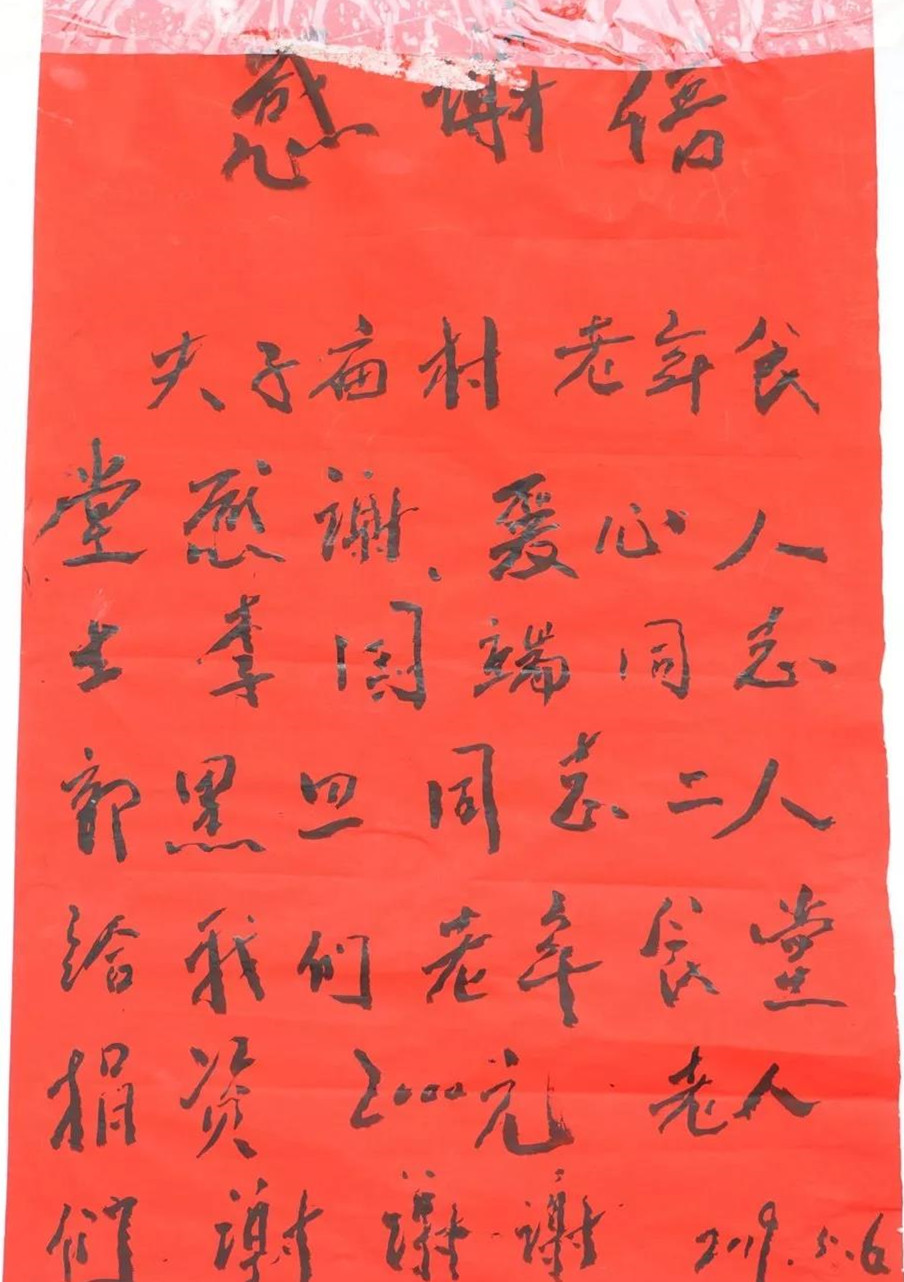 感谢信
夫子庙村老年食
堂感谢爱心人
士李国端同志
郭黑旦同志二人
给我们老年食堂
捐资2000元 老人
们谢谢谢 2019.5.6